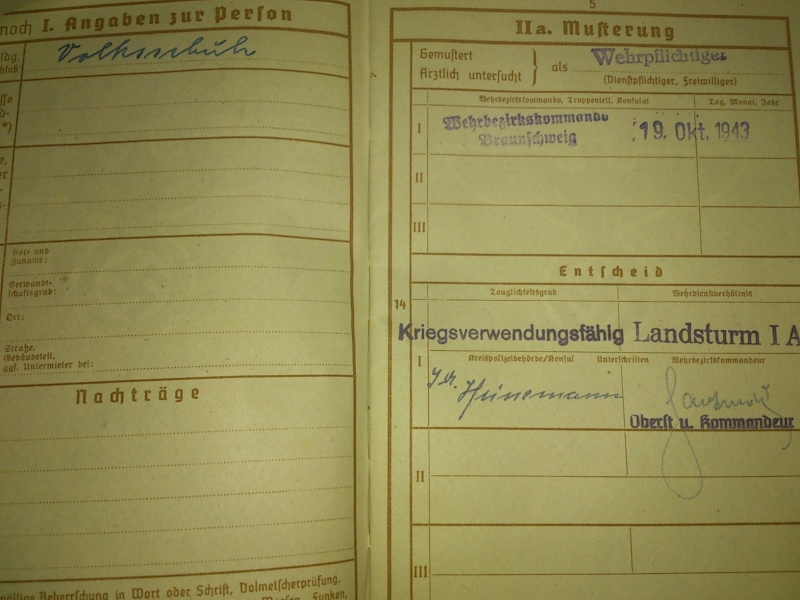 noch I. Angaben zur Person
Volksschule
Vor- und
Zuname:
Verwandt-
schaftsgrad:
Ort:
Straße,
Gebäudeteil,
ggf. Untermieter bei:
Nachträge
Beherrschung in Wort oder Schrift, Dolmetscherprüfung.
Funken,
5
IIa. Musterung
Gemustert
Ärztlich untersucht
als Wehrpflichtiger
(Dienstpflichtiger, Freiwilliger)
Wehrbezirkskommando, Truppenteil, Konsulat
Tag, Monat, Jahr
I
Wehrbezirkskommando
Braunschweig
19. Okt. 1943
II
III
Entscheid
Tauglichkeitsgrad
Wehrdienstverhältnis
14
Kriegsverwendungsfähig
Landsturm I A
I
Kreispolizeibehörde/Konsul Unterschriften Wehrbezirkskommandeur
Heinemann
Oberst u. Kommandeur
II
III